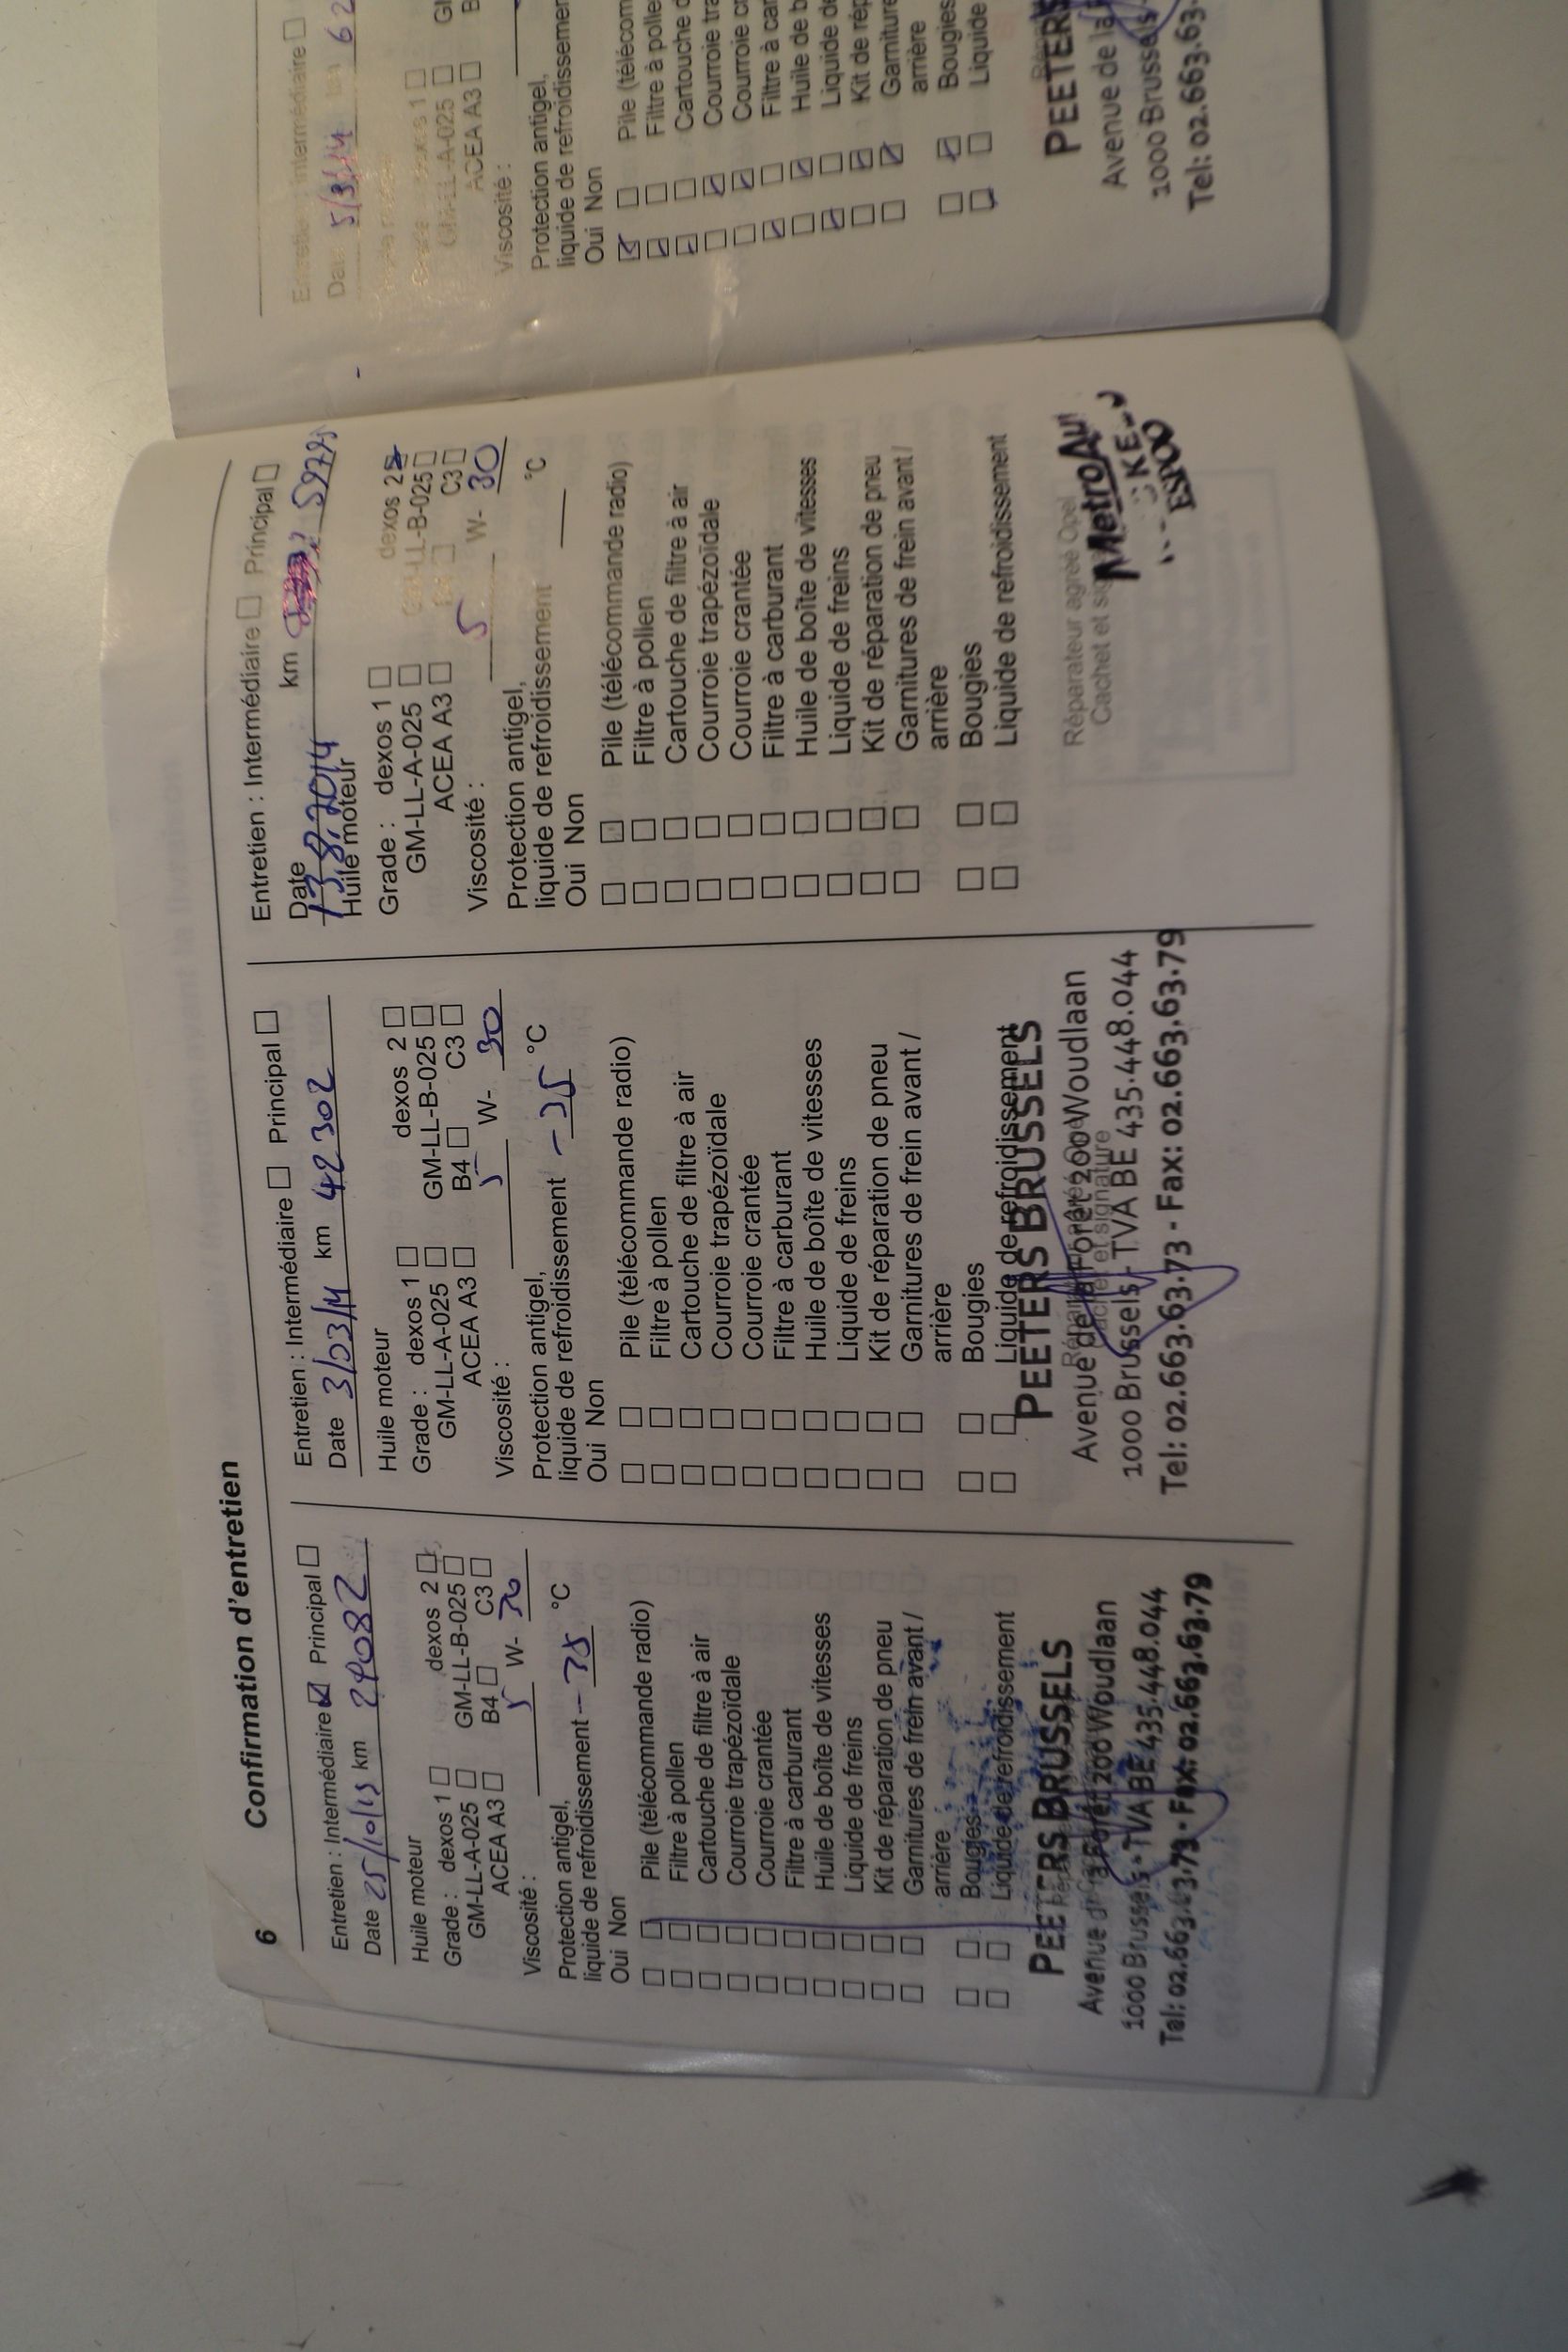 6 Confirmation d'entretien
Entretien : Intermédiaire ☑ Principal ☐
Date 25/10/13 km 24082
Huile moteur
Grade : dexos 1 ☐ dexos 2 ☐
GM-LL-A-025 ☐ GM-LL-B-025 ☐
ACEA A3 ☐ B4 ☐ C3 ☐
Viscosité : 5 W- 30
Protection antigel,
liquide de refroidissement °C
Oui Non
☐ ☐ Pile (télécommande radio)
☐ ☐ Filtre à pollen
☐ ☐ Cartouche de filtre à air
☐ ☐ Courroie trapézoïdale
☐ ☐ Courroie crantée
☐ ☐ Filtre à carburant
☐ ☐ Huile de boîte de vitesses
☐ ☐ Liquide de freins
☐ ☐ Kit de réparation de pneu
☐ ☐ Garnitures de frein avant /
arrière
☐ ☐ Bougies
☐ ☐ Liquide de refroidissement
PEETERS BRUSSELS
Avenue de la Forêt 200 Woudlaan
1000 Brussels - TVA BE 435.448.044
Tel: 02.663.63.73 - Fax: 02.663.63.79
Entretien : Intermédiaire ☐ Principal ☐
Date 3/03/14 km 42302
Huile moteur
Grade : dexos 1 ☐ dexos 2 ☐
GM-LL-A-025 ☐ GM-LL-B-025 ☐
ACEA A3 ☐ B4 ☐ C3 ☐
Viscosité : 5 W- 30
Protection antigel,
liquide de refroidissement °C
Oui Non
☐ ☐ Pile (télécommande radio)
☐ ☐ Filtre à pollen
☐ ☐ Cartouche de filtre à air
☐ ☐ Courroie trapézoïdale
☐ ☐ Courroie crantée
☐ ☐ Filtre à carburant
☐ ☐ Huile de boîte de vitesses
☐ ☐ Liquide de freins
☐ ☐ Kit de réparation de pneu
☐ ☐ Garnitures de frein avant /
arrière
☐ ☐ Bougies
☐ ☐ Liquide de refroidissement
PEETERS BRUSSELS
Avenue de la Forêt 200 Woudlaan
1000 Brussels - TVA BE 435.448.044
Tel: 02.663.63.73 - Fax: 02.663.63.79
Entretien : Intermédiaire ☐ Principal ☐
Date 13.8.2014 km
Huile moteur
Grade : dexos 1 ☐ dexos 2 ☑
GM-LL-A-025 ☐ GM-LL-B-025 ☐
ACEA A3 ☐ C3 ☐
Viscosité : 5 W- 30
Protection antigel,
liquide de refroidissement °C
Oui Non
☐ ☐ Pile (télécommande radio)
☐ ☐ Filtre à pollen
☐ ☐ Cartouche de filtre à air
☐ ☐ Courroie trapézoïdale
☐ ☐ Courroie crantée
☐ ☐ Filtre à carburant
☐ ☐ Huile de boîte de vitesses
☐ ☐ Liquide de freins
☐ ☐ Kit de réparation de pneu
☐ ☐ Garnitures de frein avant /
arrière
☐ ☐ Bougies
☐ ☐ Liquide de refroidissement
Réparateur agréé Opel
Cachet et
MetroAu
ESPOO
Entretien : Intermédiaire ☐
Date km 62
dexos 1 ☐
GM-LL-A-025 ☐
ACEA A3 ☐
Viscosité :
Protection antigel,
liquide de refroidissement
Oui Non
☑ ☐ Pile (télécom
☑ ☐ Filtre à polle
☑ ☐ Cartouche d
☐ ☑ Courroie tra
☐ ☑ Courroie cr
☑ ☐ Filtre à car
☐ ☑ Huile de b
☑ ☐ Liquide de
☐ ☑ Kit de rép
☐ ☑ Garniture
arrière
☐ ☑ Bougies
☑ ☐ Liquide
PEETERS
Avenue de la
1000 Brussels
Tel: 02.663.63.